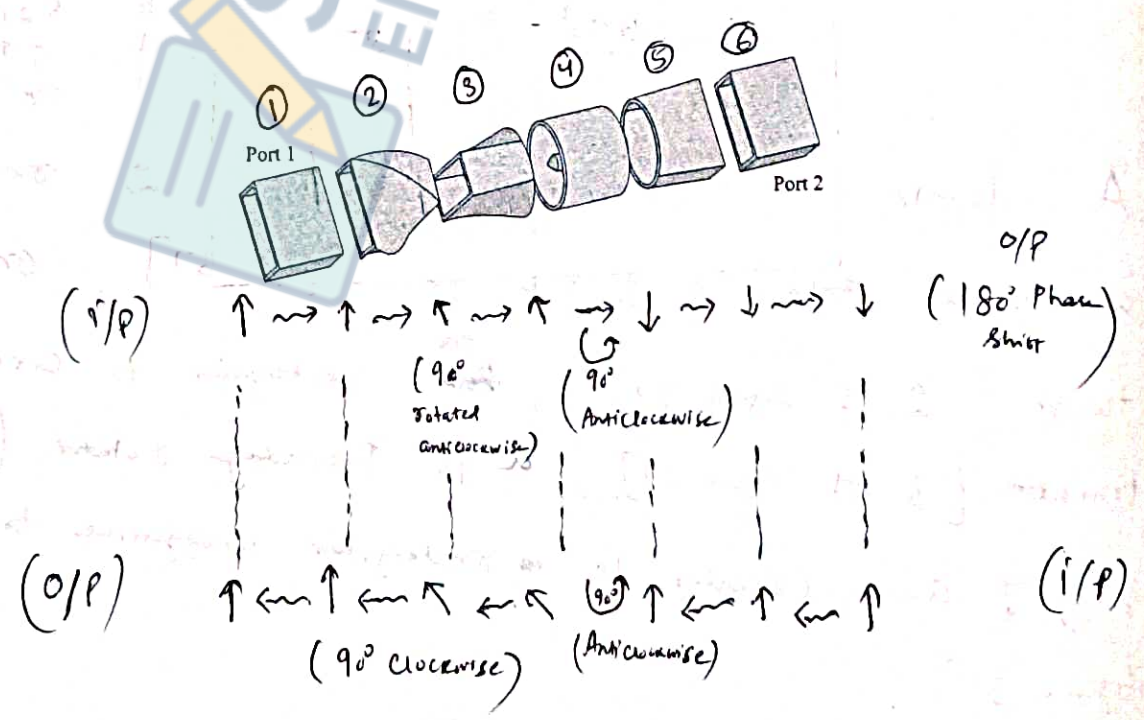 ① ② ③ ④ ⑤ ⑥
Port 1
Port 2
O/P
(i/p) (180° Phase
Shift)
(90°
rotated
anticlockwise)
(90°
Anticlockwise)
(O/P) (90°) (i/p)
(90° Clockwise) (Anticlockwise)